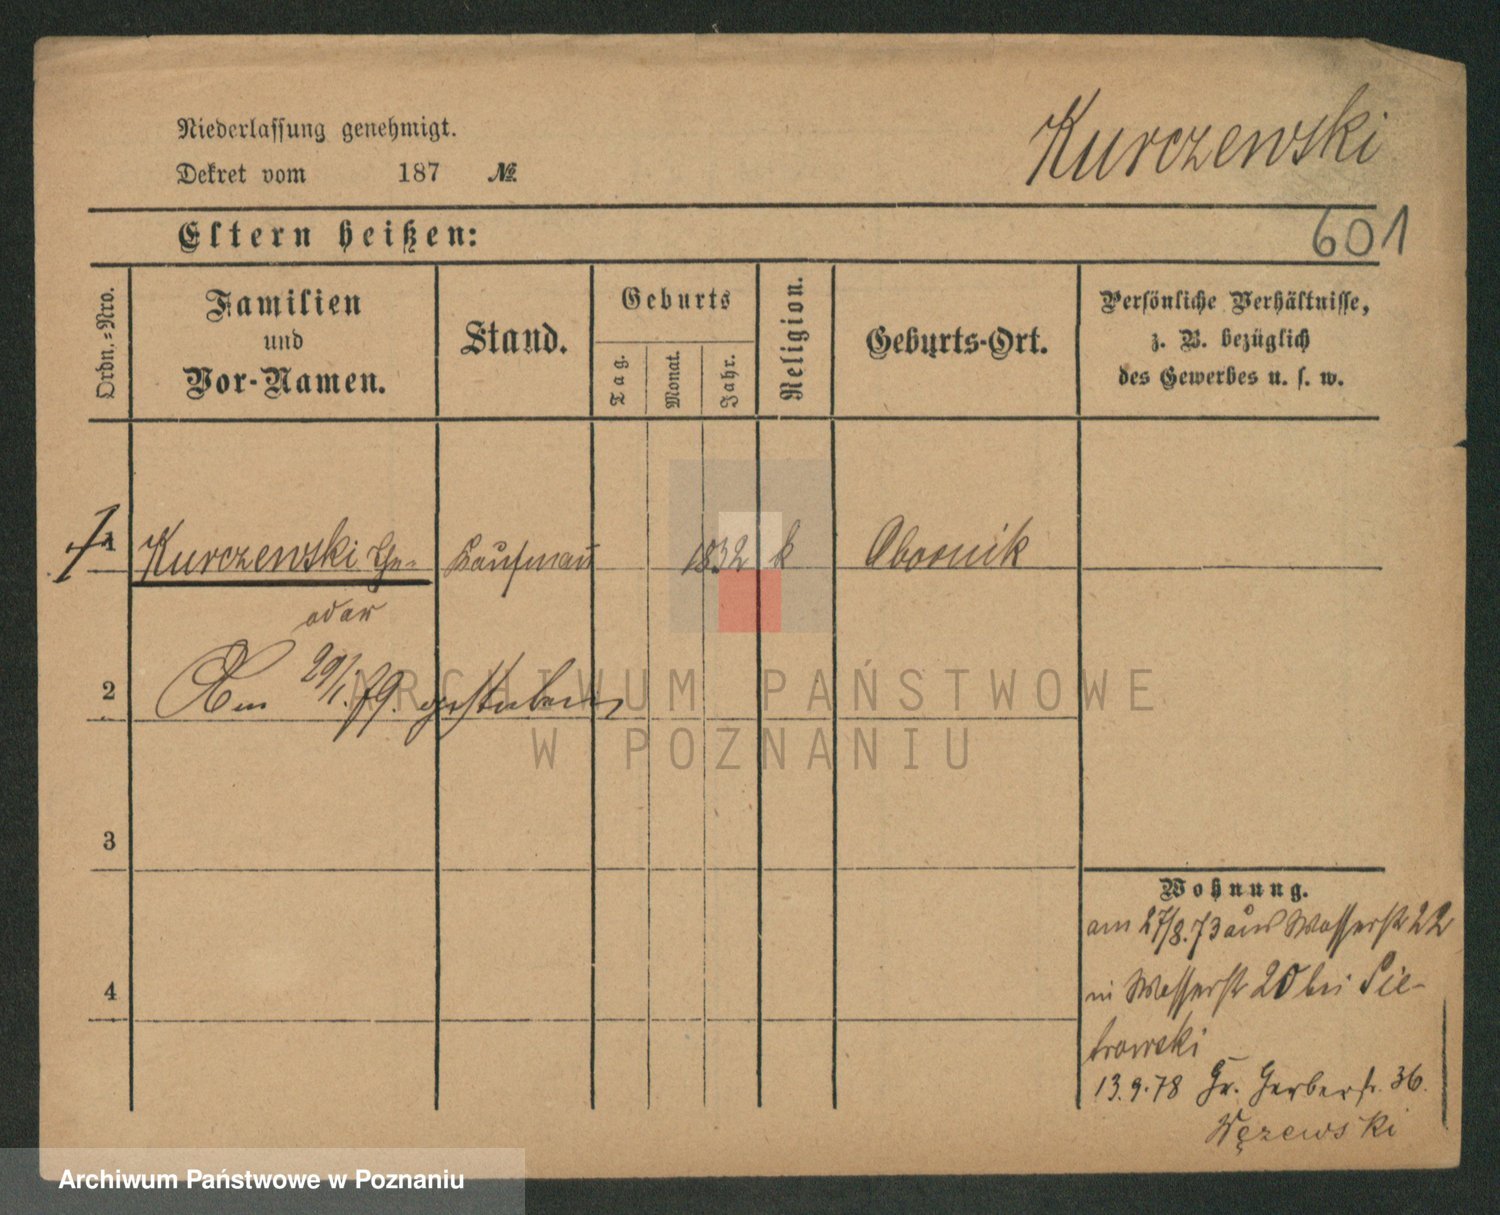 Kurczewski
Niederlassung genehmigt.
Dekret vom 187 №
601
Eltern heißen:
Ordn.=Nro.
Familien
und
Vor-Namen.
Stand.
Geburts
Tag.
Monat.
Jahr.
Religion.
Geburts-Ort.
Persönliche Verhältnisse,
z. B. bezüglich
des Gewerbes u. s. w.
1 Kurczewski The- Kaufmann 1832 k Obornik
odor
2 Am 29/1.79. gestorben
ARCHIWUM PAŃSTWOWE
W POZNANIU
3
Wohnung.
am 27/8.73 aus Wasserstr 22
4
in Wasserstr 20 bei Pie-
trowski
13.9.78 Gr. Gerberstr. 36.
Węzewski
Archiwum Państwowe w Poznaniu